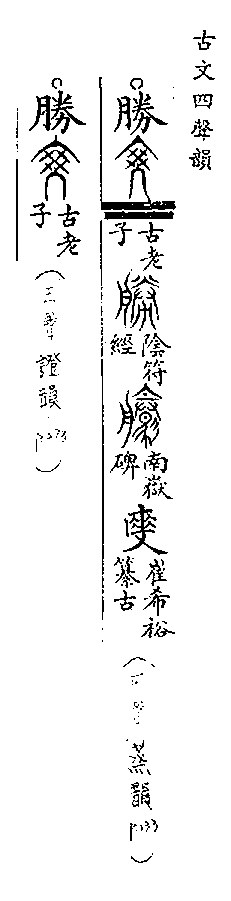 古文四聲韻
勝
古老子
陰符經
南嶽碑
崔希裕纂古
蒸韻
勝
古老子
證韻